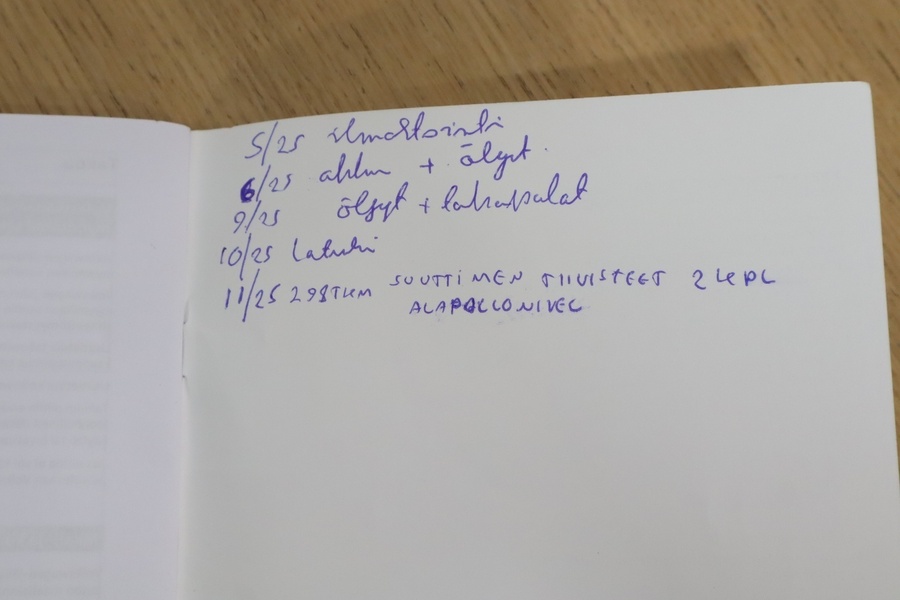 5/25 ilmastointi
6/25 akku + öljyt
9/25 öljyt + takapalat
10/25 laturi
11/25 298TKM SUUTTIMEN TIIVISTEET 2 KPL
ALAPALLONIVEL